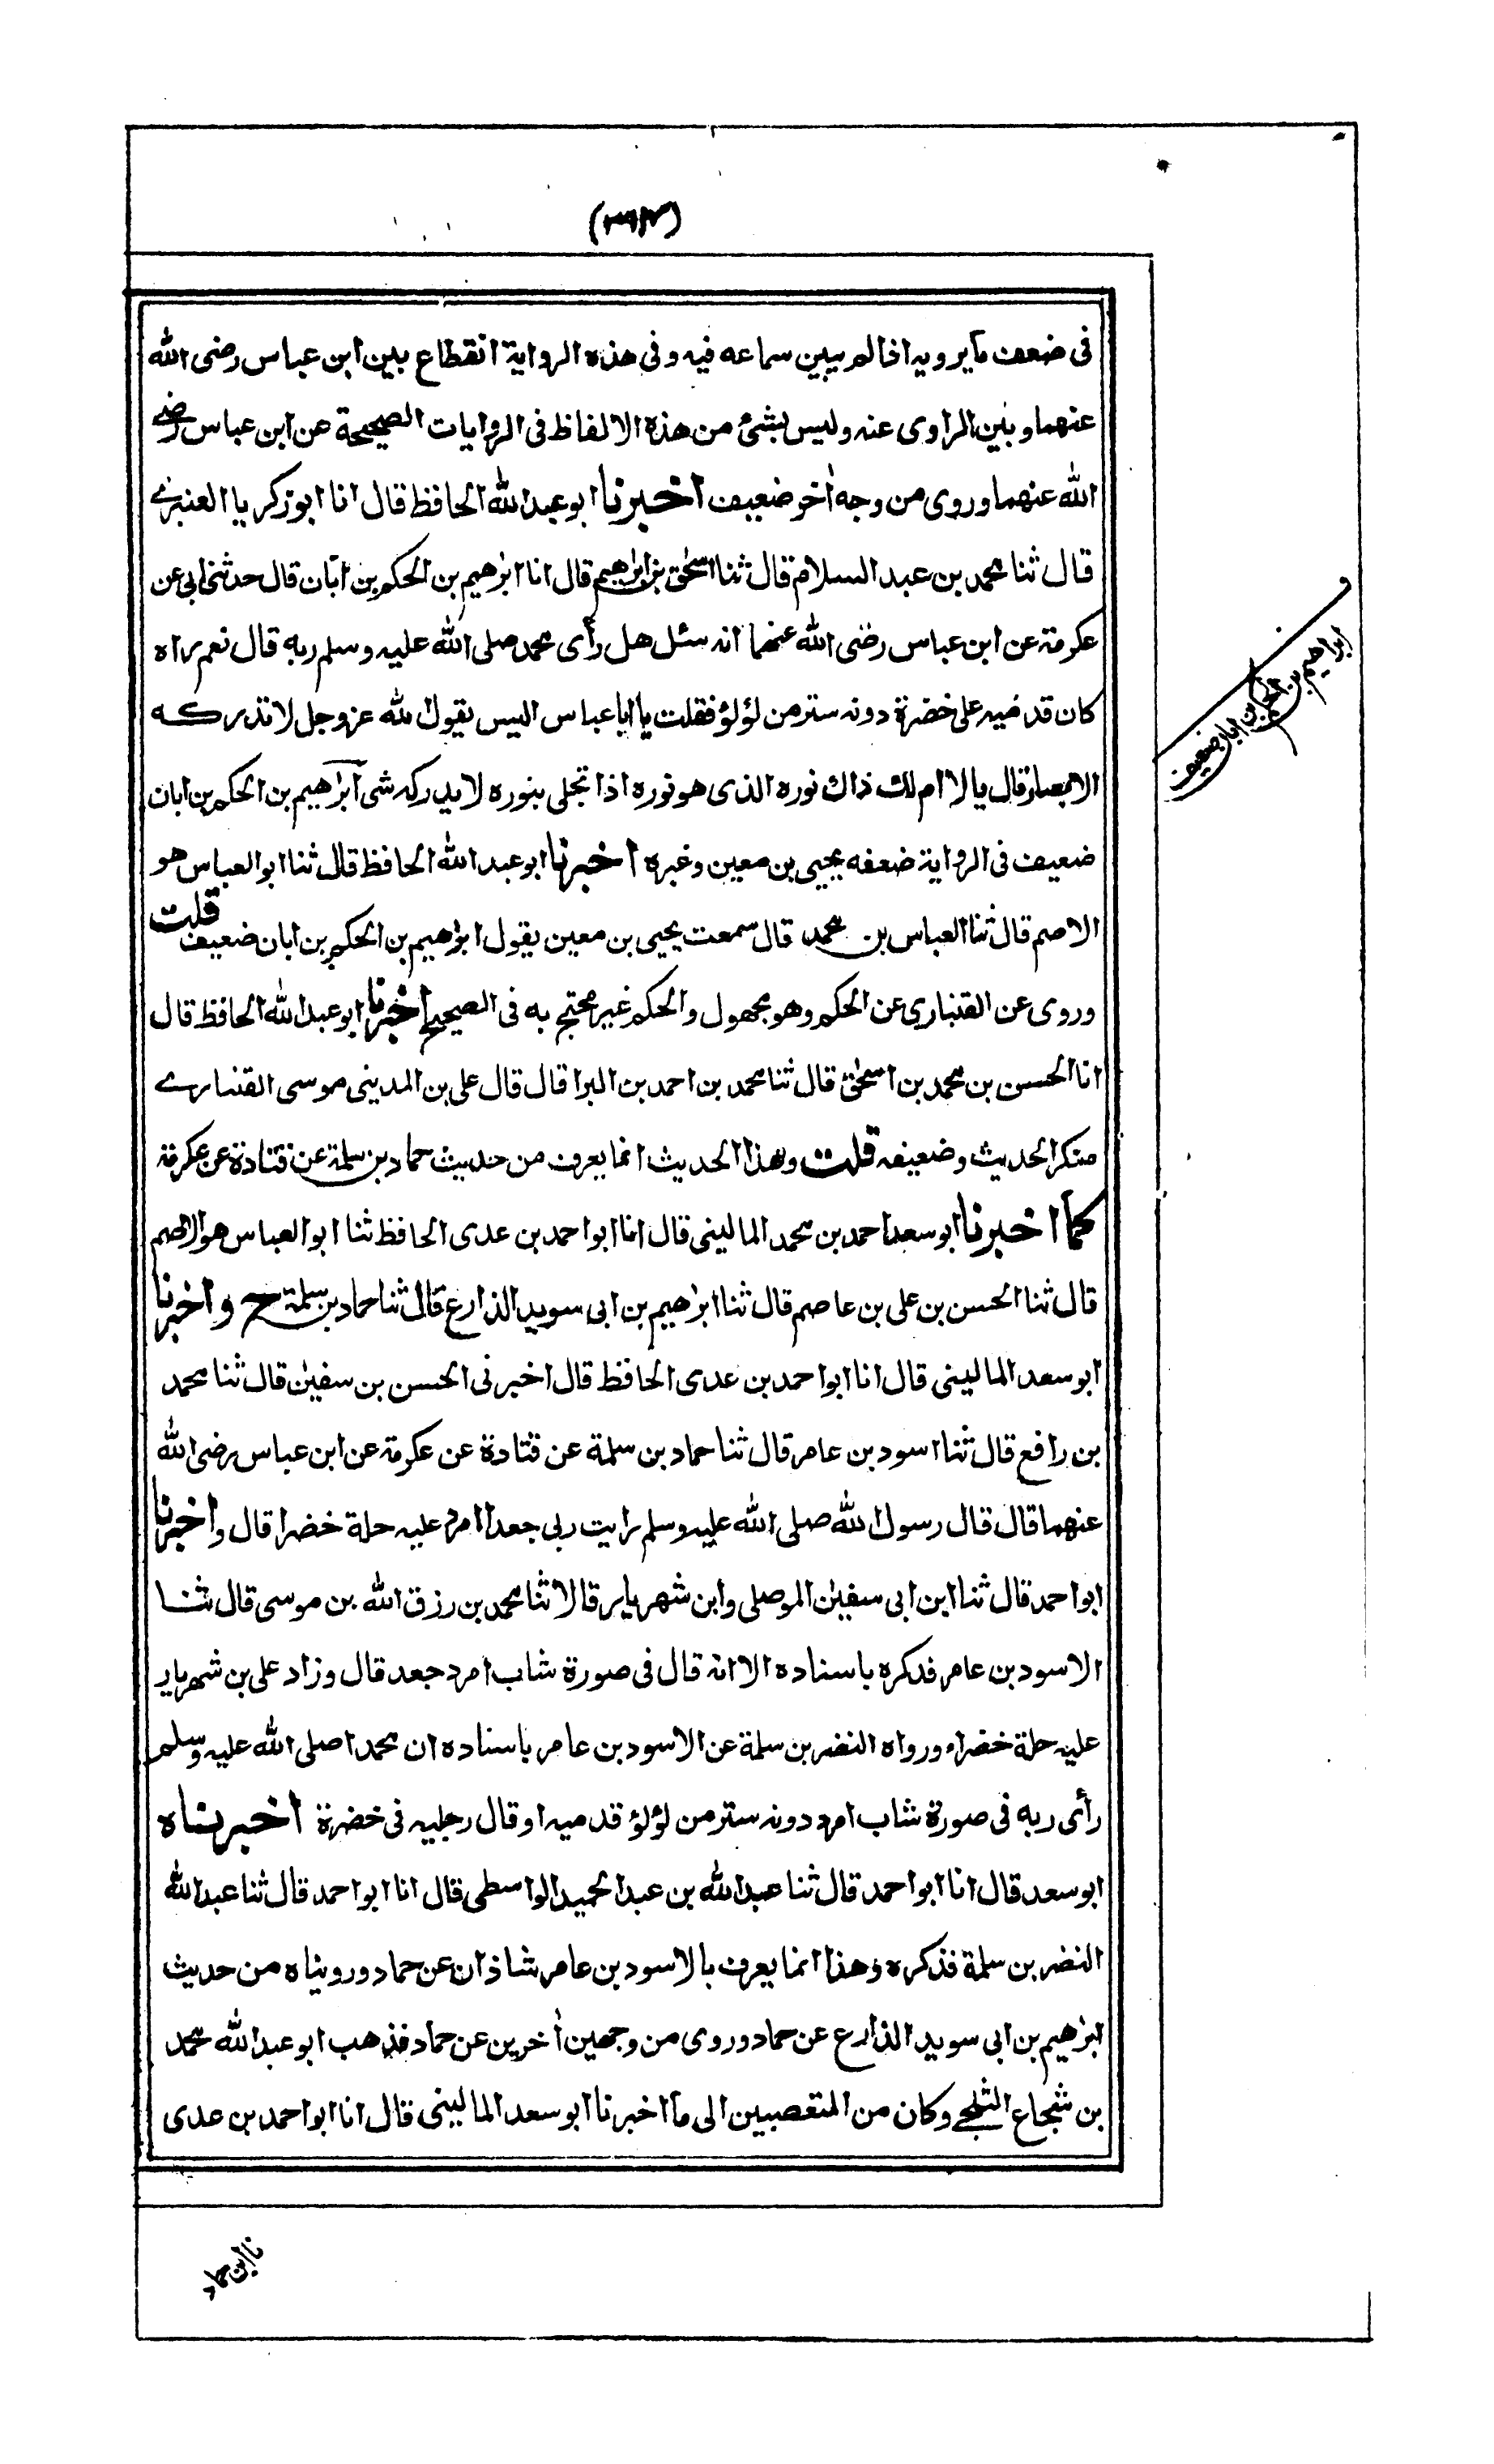 (٣١٣)
فى ضعف ما يرويه اذا لم يبين سماعه فيه وفى هذه الرواية انقطاع بين ابن عباس رضى الله
عنهما وبين الراوى عنه وليس بشئ من هذه الالفاظ فى الروايات الصحيحة عن ابن عباس رضے
الله عنهما وروى من وجه اٰخر ضعيف اخبرنا ابو عبد الله الحافظ قال انا ابو زكريا العنبرے
قال ثنا محمد بن عبد السلام قال ثنا اسحٰق بن ابراهيم قال انا ابرٰهيم بن الحكم بن ابان قال حدثنى ابى عن
عكرمة عن ابن عباس رضى الله عنهما انه سئل هل رأى محمد صلى الله عليه وسلم ربه قال نعم راه
كان قدميه على خضرة دونه ستر من لؤلؤ فقلت يا ابا عباس اليس يقول الله عز وجل لا تدركه
الابصار قال يا لا ام لك ذاك نوره الذى هو نوره اذا تجلى بنوره لا يدركه شى ابرٰهيم بن الحكم بن ابان
ضعيف فى الرواية ضعفه يحيى بن معين وغيره اخبرنا ابو عبد الله الحافظ قال ثنا ابو العباس هو
الاصم قال ثنا العباس بن محمد قال سمعت يحيى بن معين يقول ابرٰهيم بن الحكم بن ابان ضعيف قلت
وروى عن القنبارى عن الحكم وهو مجهول والحكم غير محتج به فى الصحيح اخبرنا ابو عبد الله الحافظ قال
انا الحسن بن محمد بن اسحٰق قال ثنا محمد بن احمد بن البرا قال قال على بن المدينى موسى القنبارے
منكر الحديث وضعيفه قلت وهذا الحديث انما يعرف من حديث حماد بن سلمة عن قتادة عن عكرمة
كما اخبرنا ابو سعد احمد بن محمد المالينى قال انا ابو احمد بن عدى الحافظ ثنا ابو العباس هو الاصم
قال ثنا الحسن بن على بن عاصم قال ثنا ابرٰهيم بن ابى سويد الذارع قال ثنا حماد بن سلمة ح واخبرنا
ابو سعد المالينى قال انا ابو احمد بن عدى الحافظ قال اخبرنى الحسن بن سفيٰن قال ثنا محمد
بن رافع قال ثنا اسود بن عامر قال ثنا حماد بن سلمة عن قتادة عن عكرمة عن ابن عباس رضى الله
عنهما قال قال رسول الله صلى الله عليه وسلم رايت ربى جعدا امرد عليه حلة خضرا قال واخبرنا
ابو احمد قال ثنا ابن ابى سفيٰن الموصلى وابن شهريار قالا ثنا محمد بن رزق الله بن موسى قال ثنا
الاسود بن عامر فذكره باسناده الا انه قال فى صورة شاب امرد جعد قال وزاد على بن شهريار
عليه حلة خضراء ورواه النضر بن سلمة عن الاسود بن عامر باسناده ان محمدا صلى الله عليه وسلم
رأى ربه فى صورة شاب امرد دونه ستر من لؤلؤ قدميه او قال رجليه فى خضرة اخبرناه
ابو سعد قال انا ابو احمد قال ثنا عبد الله بن عبد الحميد الواسطى قال انا ابو احمد قال ثنا عبد الله
النضر بن سلمة فذكره وهذا انما يعرف بالاسود بن عامر شاذان عن حماد ورويناه من حديث
ابرٰهيم بن ابى سويد الذارع عن حماد وروى من وجهين اٰخرين عن حماد فذهب ابو عبد الله محمد
بن شجاع الثلجے وكان من المتعصبين الى ما اخبرنا ابو سعد المالينى قال انا ابو احمد بن عدى
ابراهيم بن الحكم بن ابان ضعيف
نا ابن حماد